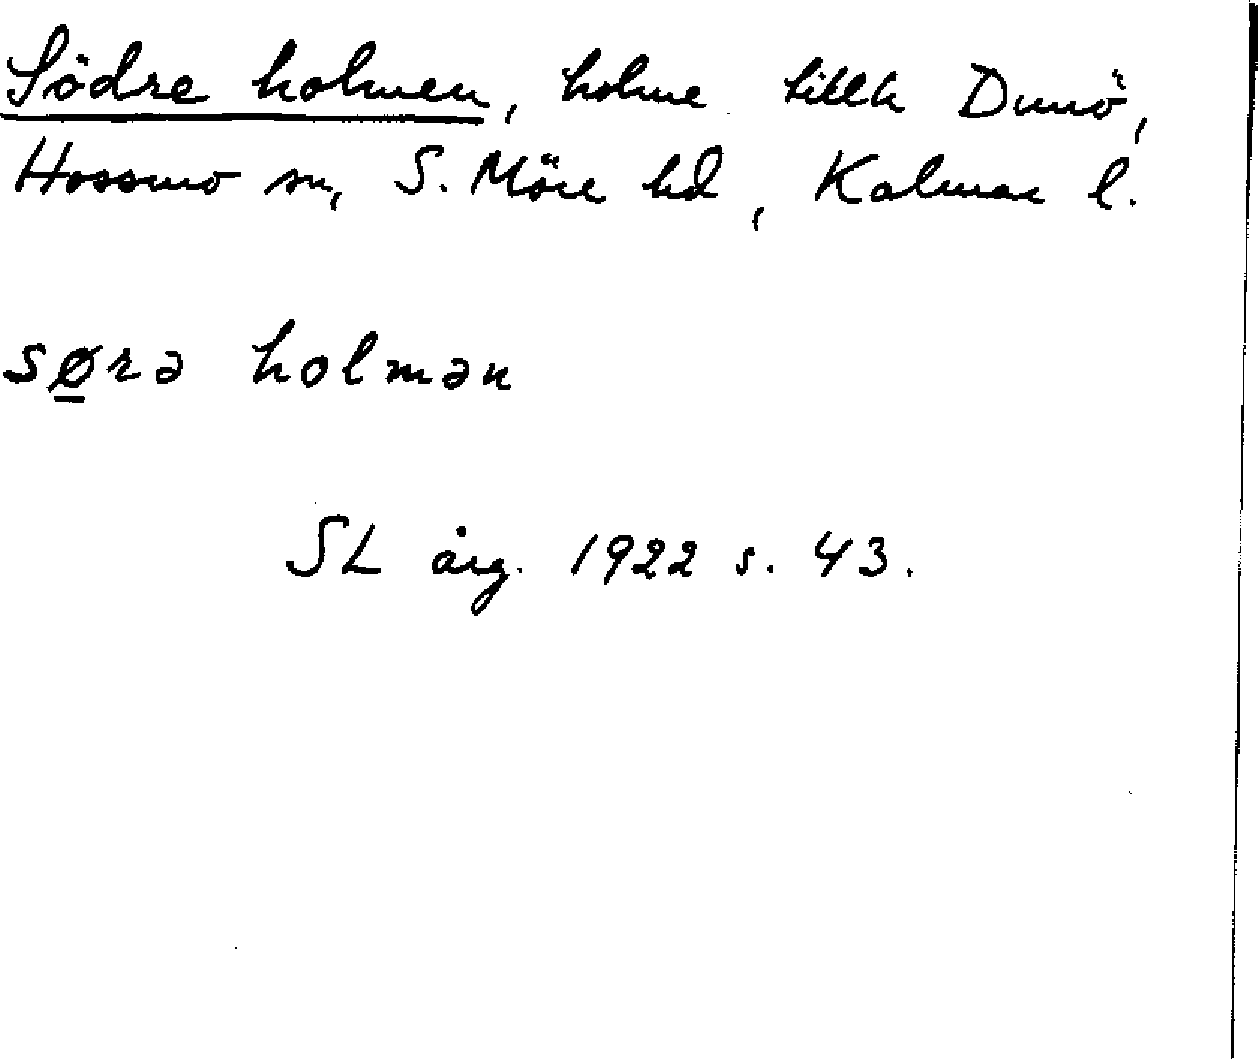 Södre holmen, holme tillh Dunö,
Hossmo sn, S. Möre hd, Kalmar l.
sørə holmən
SL årg. 1922 s. 43.